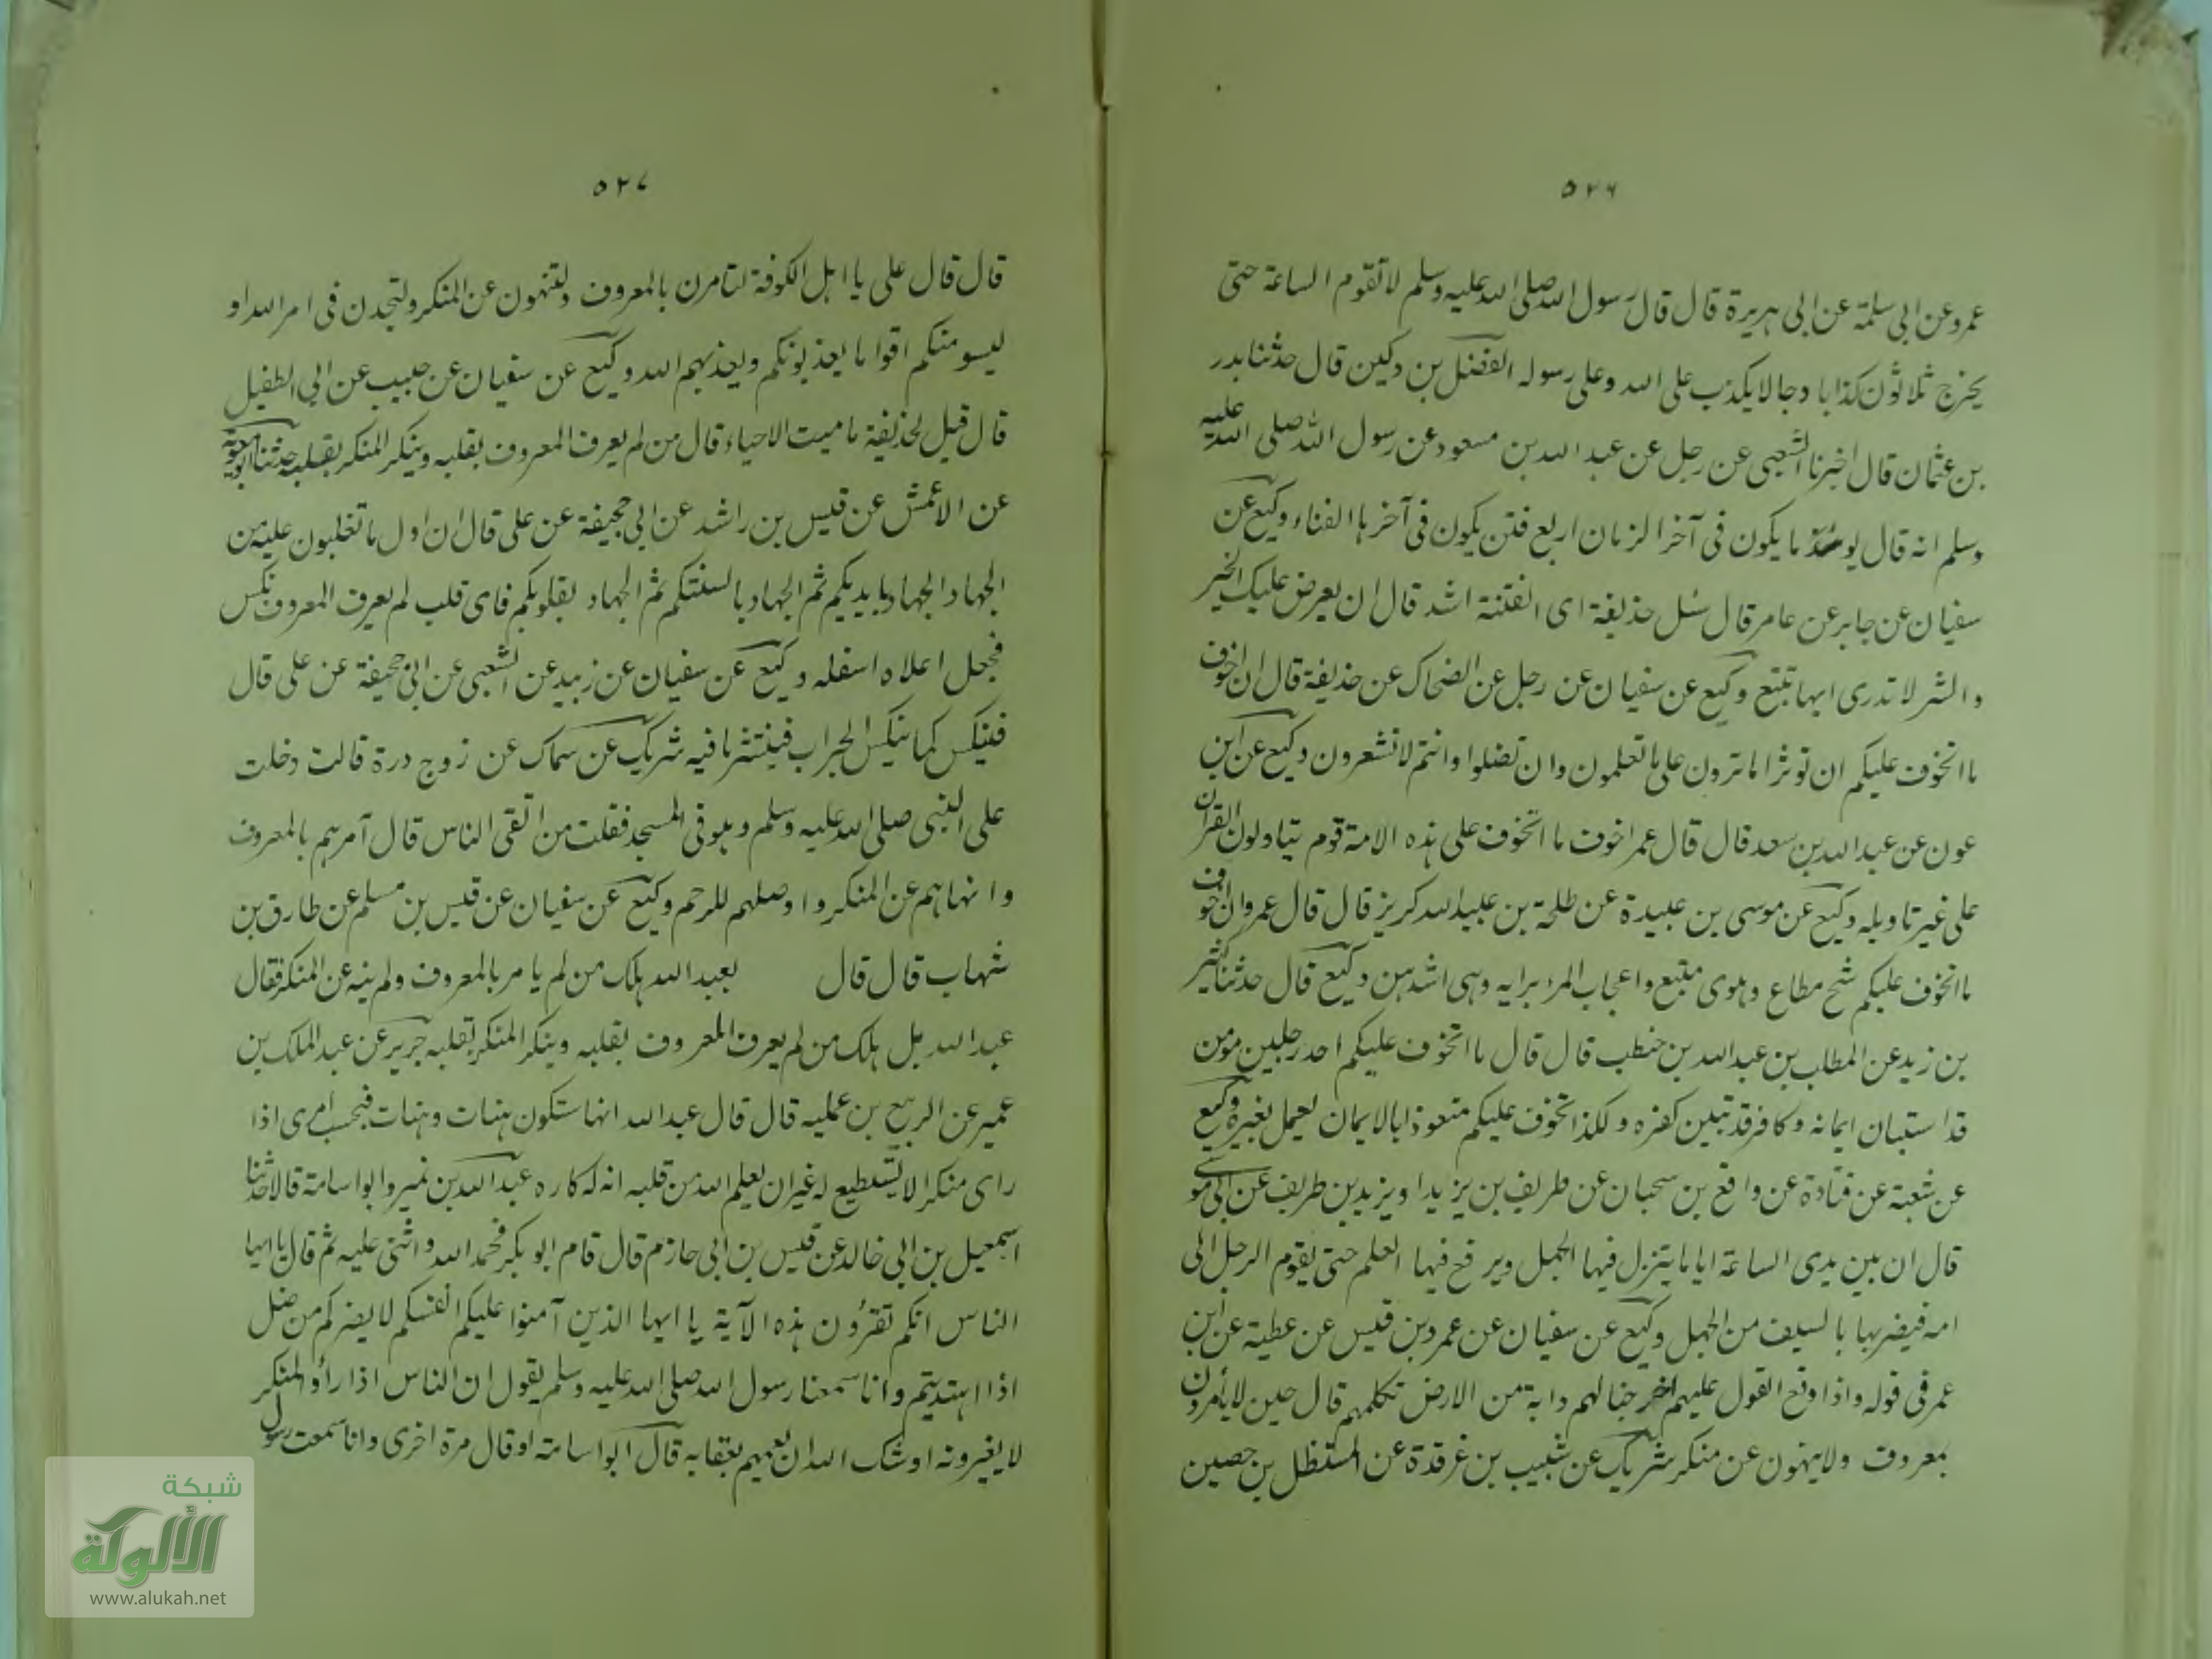 ٥٢٦
عمرو عن ابى سلمة عن ابى هريرة قال قال رسول الله صلى الله عليه وسلم لا تقوم الساعة حتى
يخرج ثلاثون كذابا دجالا يكذب على الله وعلى رسوله الفضل بن دكين قال حدثنا بدر
بن عثمان قال اخبرنا الشعبى عن رجل عن عبد الله بن مسعود عن رسول الله صلى الله عليه
وسلم انه قال يكون فى آخر الزمان اربع فتن يكون فى آخرها الفناء وكيع عن
سفيان عن جابر عن عامر قال سئل حذيفة اى الفتنة اشد قال ان يعرض عليك الخير
والشر لا تدرى ايها تتبع وكيع عن سفيان عن رجل عن الضحاك عن حذيفة قال ان اخوف
ما اتخوف عليكم ان توثروا ما ترون على ما تعلمون وان تضلوا وانتم لا تشعرون وكيع عن ابن
عون عن عبد الله بن سعد قال قال عمر اخوف ما اتخوف على هذه الامة قوم يتاولون القرآن
على غير تاويله وكيع عن موسى بن عبيدة عن طلحة بن عبيد الله كريز قال قال عمر وان اخوف
ما اتخوف عليكم شح مطاع وهوى متبع واعجاب المرء برايه وهى اشدهن وكيع قال حدثنا كثير
بن زيد عن المطلب بن عبد الله بن حنطب قال قال ما اتخوف عليكم احد رجلين مومن
قد استبان ايمانه وكافر قد تبين كفره ولكذا تخوف عليكم متعوذا بالايمان يعمل بغيره وكيع
عن شعبة عن قتادة عن واقع بن سحبان عن طريف بن يزيد او يزيد بن طريف عن ابى موسى
قال ان بين يدى الساعة اياما ينزل فيها الجهل ويرفع فيها العلم حتى يقوم الرجل الى
امه فيضربها بالسيف من الجهل وكيع عن سفيان عن عمرو بن قيس عن عطية عن ابن
عمر فى قوله واذا وقع القول عليهم اخرجنا لهم دابة من الارض تكلمهم قال حين لا يأمرون
بمعروف ولا ينهون عن منكر شريك عن شبيب بن غرقدة عن المستظل بن حصين
٥٢٧
قال قال على يا اهل الكوفة لتامرن بالمعروف ولتنهون عن المنكر ولتجدن فى امر الله او
ليسومنكم اقواما يعذبونكم ويعذبهم الله وكيع عن سفيان عن حبيب عن ابى الطفيل
قال قيل لحذيفة ما ميت الاحياء قال من لم يعرف المعروف بقلبه وينكر المنكر بقلبه حدثنا ابو معوية
عن الاعمش عن قيس بن راشد عن ابى جحيفة عن على قال ان اول ما تغلبون عليه من
الجهاد الجهاد بايديكم ثم الجهاد بالسنتكم ثم الجهاد بقلوبكم فاى قلب لم يعرف المعروف نكس
فجعل اعلاه اسفله وكيع عن سفيان عن زبيد عن الشعبى عن ابى جحيفة عن على قال
فينكس كما ينكس الجراب فينتثر ما فيه شريك عن سماك عن زوج درة قالت دخلت
على النبى صلى الله عليه وسلم وهو فى المسجد فقلت من اتقى الناس قال آمرهم بالمعروف
وانهاهم عن المنكر واوصلهم للرحم وكيع عن سفيان عن قيس بن مسلم عن طارق بن
شهاب قال قال لعبد الله هلك من لم يامر بالمعروف ولم ينه عن المنكر فقال
عبد الله بل هلك من لم يعرف المعروف بقلبه وينكر المنكر بقلبه جرير عن عبد الملك بن
عمير عن الربيع بن عمليه قال قال عبد الله انها ستكون هنات وهنات فبحسب امرى اذا
راى منكرا لا يستطيع له غير ان يعلم الله من قلبه انه له كاره عبد الله بن نمير وابو اسامة قالا حدثنا
اسمعيل بن ابى خالد عن قيس بن ابى حازم قال قام ابو بكر فحمد الله واثنى عليه ثم قال يا ايها
الناس انكم تقرؤن هذه الآية يا ايها الذين آمنوا عليكم انفسكم لا يضركم من ضل
اذا اهتديتم وانا سمعنا رسول الله صلى الله عليه وسلم يقول ان الناس اذا رأو المنكر
لا يغيرونه اوشك الله ان يعمهم بعقابه قال ابو اسامة او قال مرة اخرى وانا سمعت رسول
شبكة
الألوكة
www.alukah.net